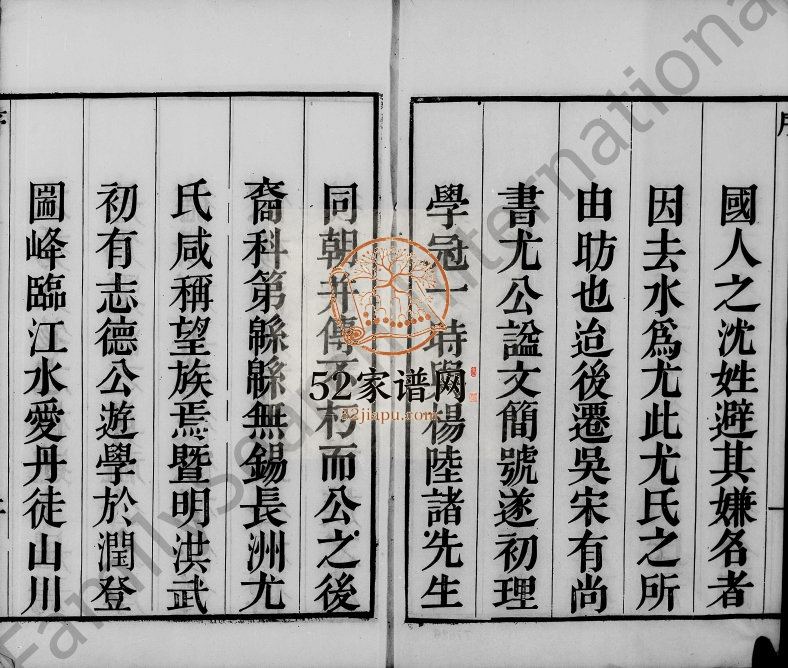 序
國人之沈姓避其嫌名者
因去水爲尤此尤氏之所
由昉也迨後遷吳宋有尚
書尤公諡文簡號遂初理
學冠一時與楊陸諸先生
同朝并傳不朽而公之後
裔科第緜緜無錫長洲尤
氏咸稱望族焉暨明洪武
初有志德公遊學於潤登
圌峰臨江水愛丹徒山川
52家谱网
52jiapu.com
FamilySearch International